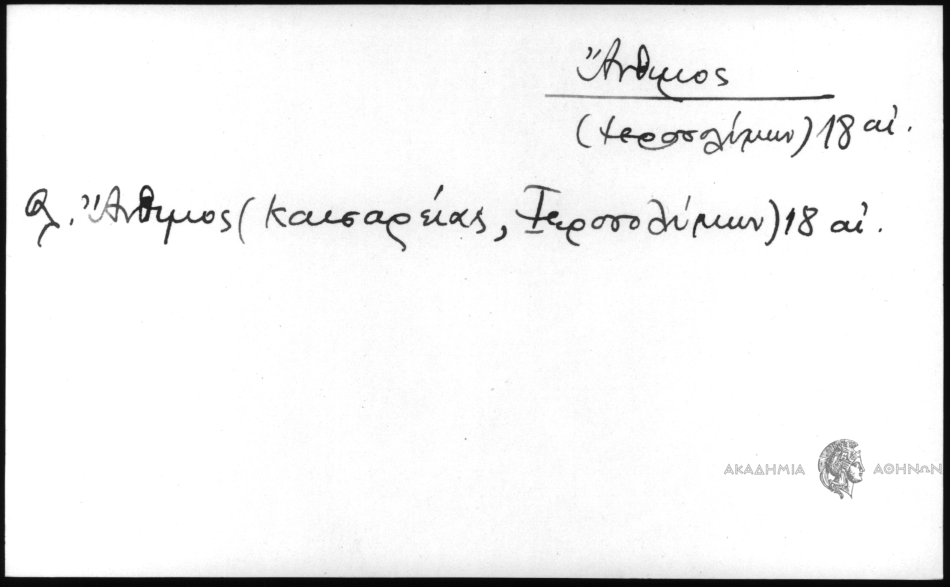 Ἄνθιμος
(Ἱεροσολύμων) 18 αἰ.
βλ. Ἄνθιμος (Καισαρείας, Ἱεροσολύμων) 18 αἰ.
ΑΚΑΔΗΜΙΑ ΑΘΗΝΩΝ